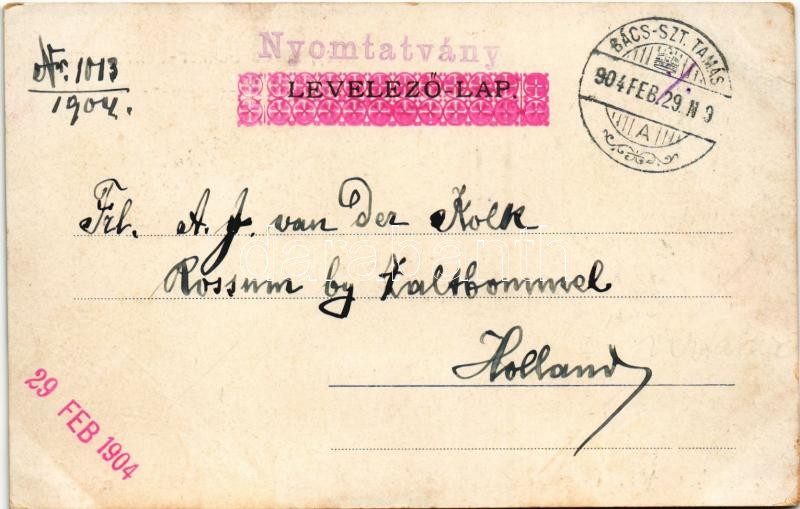 Nyomtatvány
LEVELEZŐ-LAP.
Nr. 1013
1904.
BÁCS-SZT. TAMÁS
904 FEB. 29. N 9
A
Frl. A. J. van der Kolk
Rossum by Zaltbommel
Holland
29 FEB 1904